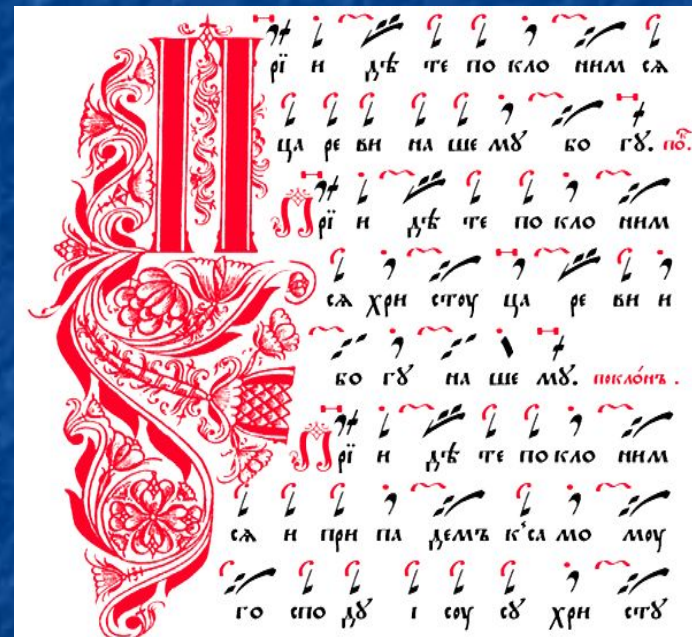 Прї и дѣ те по кло ним сѧ
ца ре ви на ше мꙋ бо гꙋ. по́к.
Прї и дѣ те по кло ним
сѧ хри стоу ца ре ви и
бо гꙋ на ше мꙋ. покло́нъ.
Прї и дѣ те по кло ним
сѧ и при па демъ к̾са мо моу
го спо дꙋ і соу сꙋ хри стꙋ